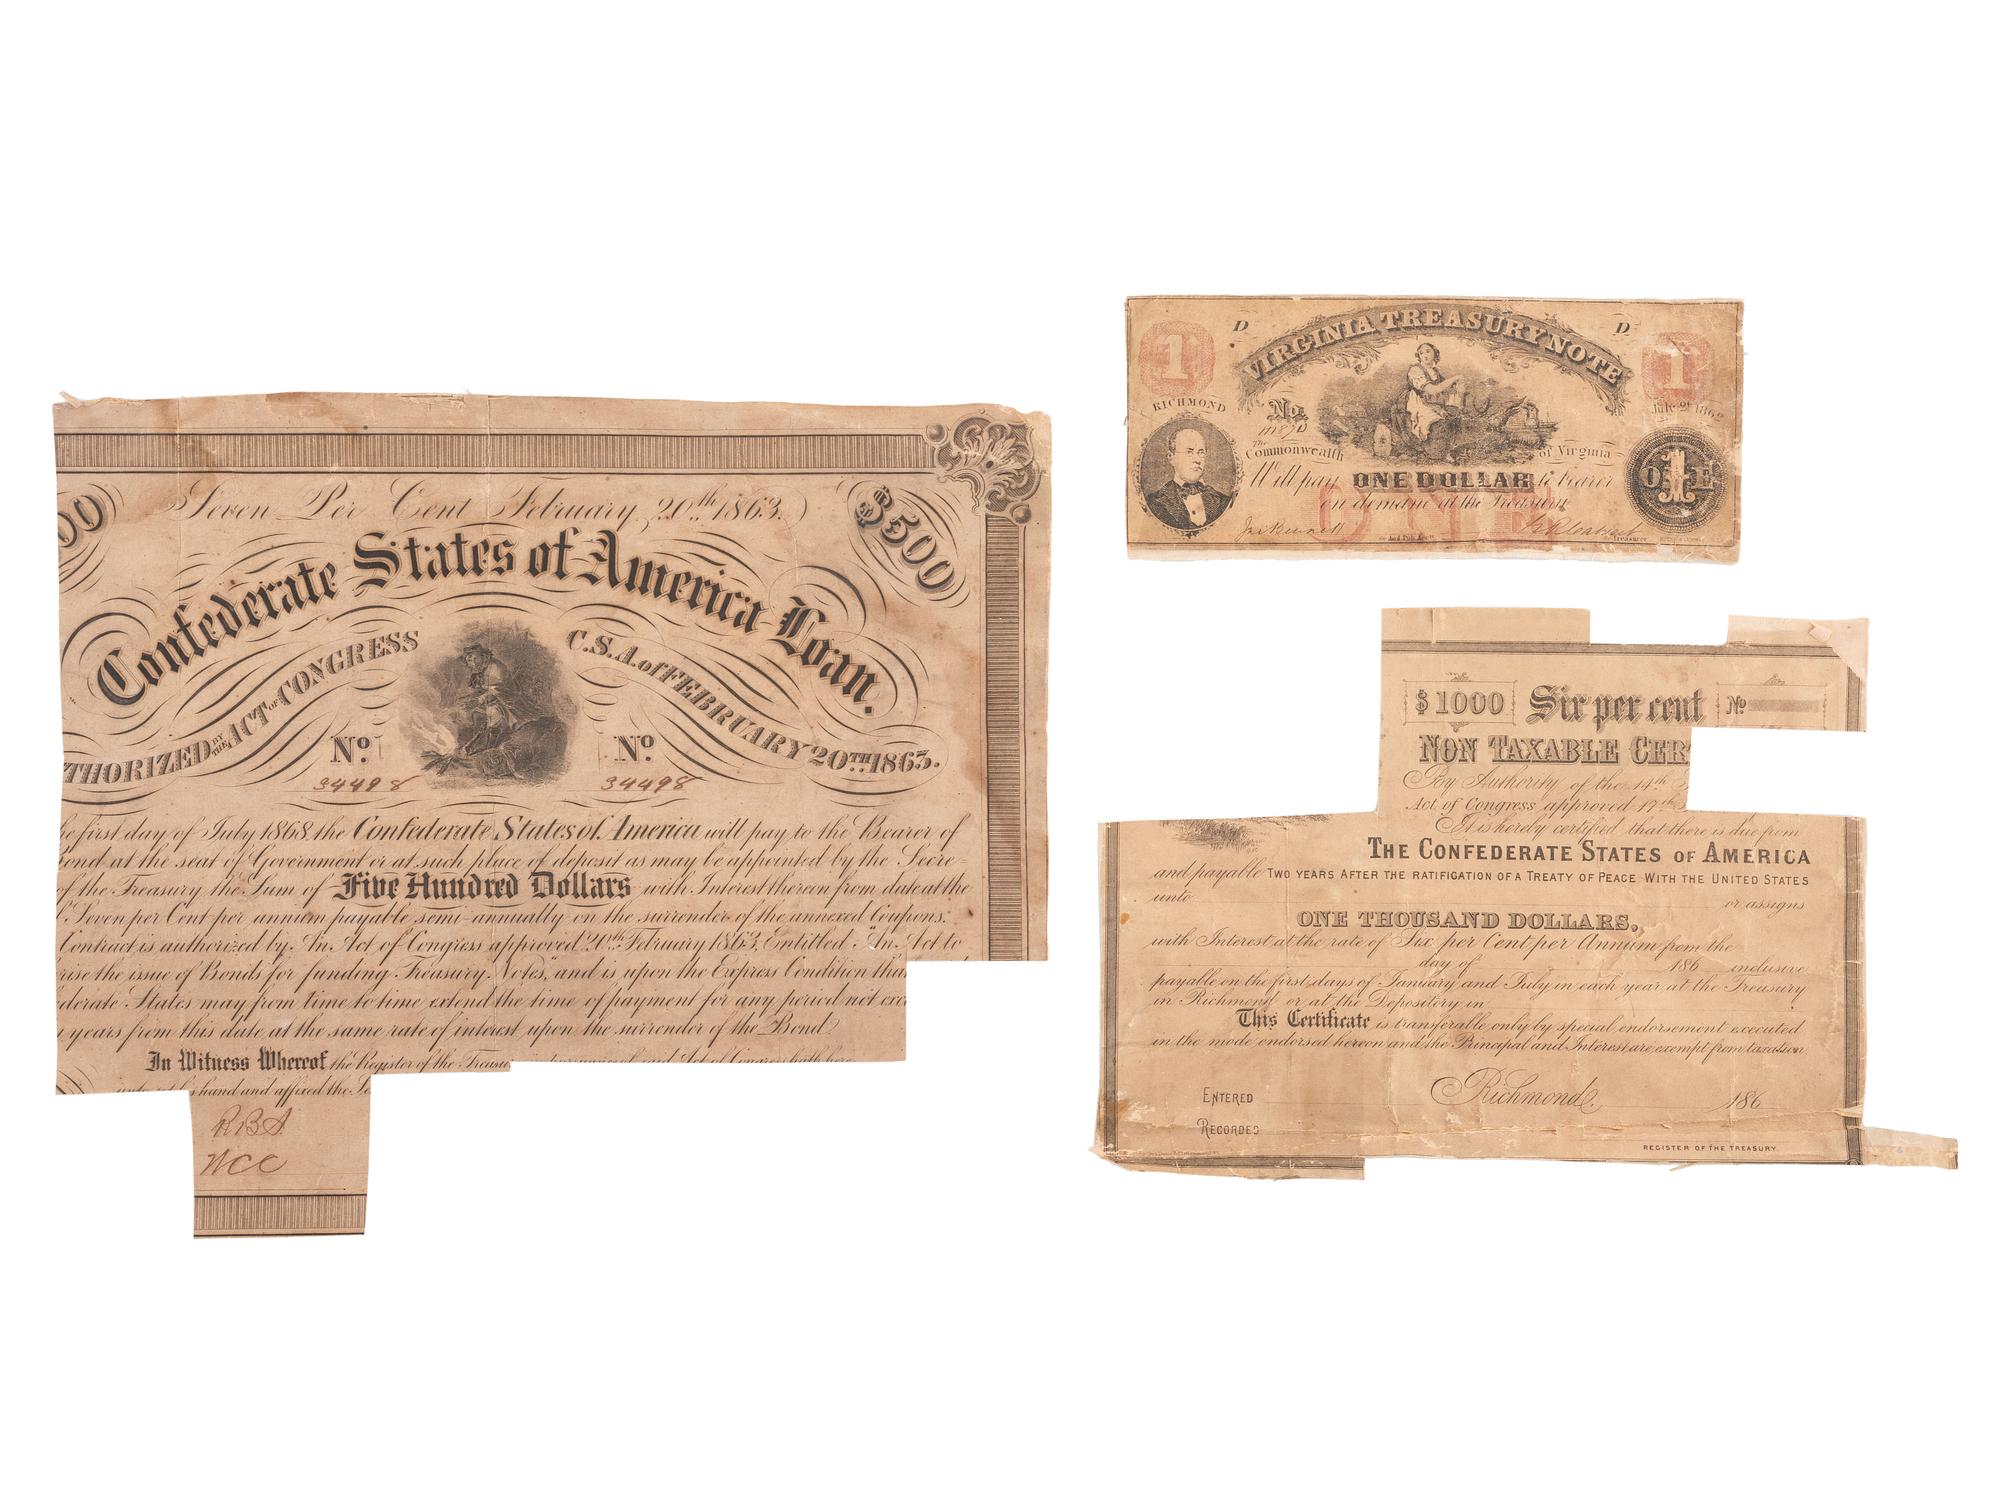 00
Seven Per Cent February 20th 1863.
$500
Confederate States of America Loan.
THORIZED BY THE ACT OF CONGRESS
C.S.A. of FEBRUARY 20TH 1863.
No
No
34498
34498
first day of July 1868 the Confederate States of America will pay to the Bearer of
ond at the seat of Government or at such place of deposit as may be appointed by the Secre-
of the Treasury the Sum of Five Hundred Dollars with Interest thereon from date at the
Seven per Cent per annum payable semi-annually on the surrender of the annexed Coupons.
Contract is authorized by An Act of Congress approved 20th February 1863, Entitled "An Act to
rise the issue of Bonds for funding Treasury Notes," and is upon the Express Condition that
derate States may from time to time extend the time of payment for any period not exc
years from this date at the same rate of interest upon the surrender of the Bond
In Witness Whereof the Register of the Treasu
hand and affixed the Se
RBA
WCC
D
D
VIRGINIA TREASURY NOTE
1
1
RICHMOND
July 21 1862
No.
The Commonwealth of Virginia
Will pay ONE DOLLAR to bearer
on demand at the Treasury
ONE
ONE
1
Treasurer
$1000
Six per cent
No
NON TAXABLE CER
By Authority of the 14th
Act of Congress approved 17th
It is hereby certified that there is due from
THE CONFEDERATE STATES OF AMERICA
and payable TWO YEARS AFTER THE RATIFICATION OF A TREATY OF PEACE WITH THE UNITED STATES
unto or assigns
ONE THOUSAND DOLLARS,
with Interest at the rate of Six per Cent per Annum from the
day of 186 inclusive
payable on the first days of January and July in each year at the Treasury
in Richmond or at the Depository in
This Certificate is transferable only by special endorsement executed
in the mode endorsed hereon and the Principal and Interest are exempt from taxation
ENTERED
Richmond, 186
RECORDED
REGISTER OF THE TREASURY.